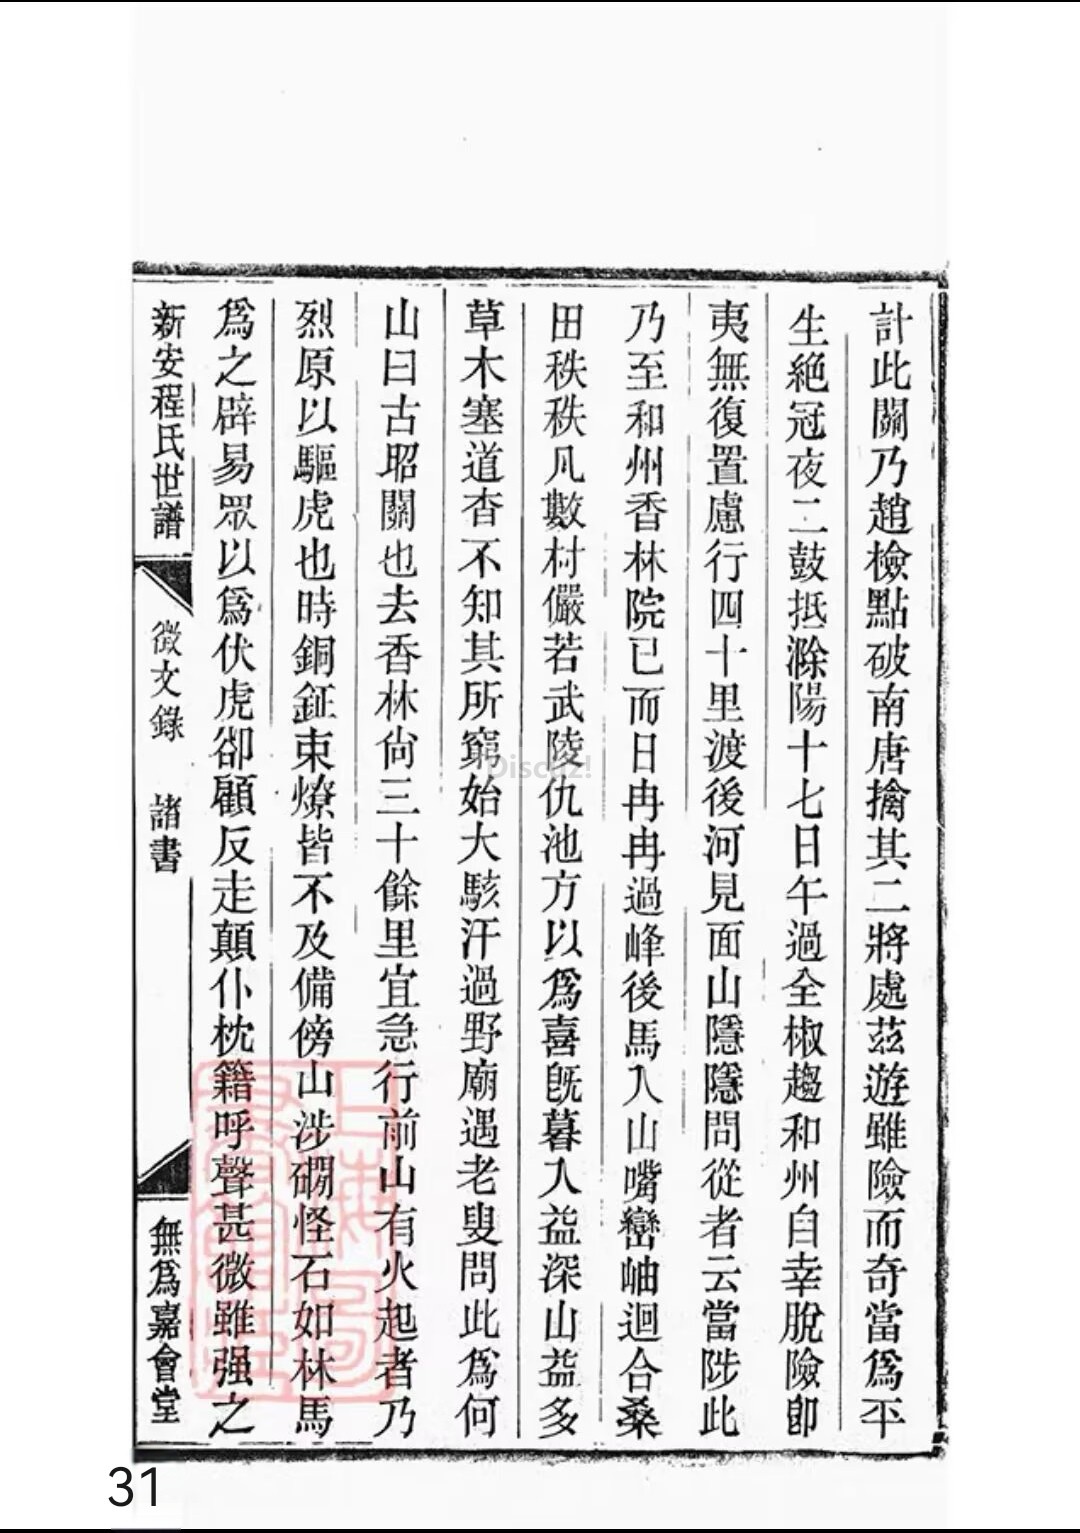 計此關乃趙檢點破南唐擒其二將處茲遊雖險而奇當爲平
生絶冠夜二鼓抵滁陽十七日午過全椒趨和州自幸脫險卽
夷無復置慮行四十里渡後河見面山隱隱問從者云當陟此
乃至和州香林院已而日冉冉過峰後馬入山嘴巒岫迴合桑
田秩秩凡數村儼若武陵仇池方以爲喜旣暮入益深山益多
草木塞道杳不知其所窮始大駭汗過野廟遇老叟問此爲何
山曰古昭關也去香林尙三十餘里宜急行前山有火起者乃
烈原以驅虎也時銅鉦束燎皆不及備傍山涉磵怪石如林馬
爲之辟易眾以爲伏虎卻顧反走顛仆枕籍呼聲甚微雖强之
新安程氏世譜
徵文錄
諸書
無爲嘉會堂
Discuz!
31